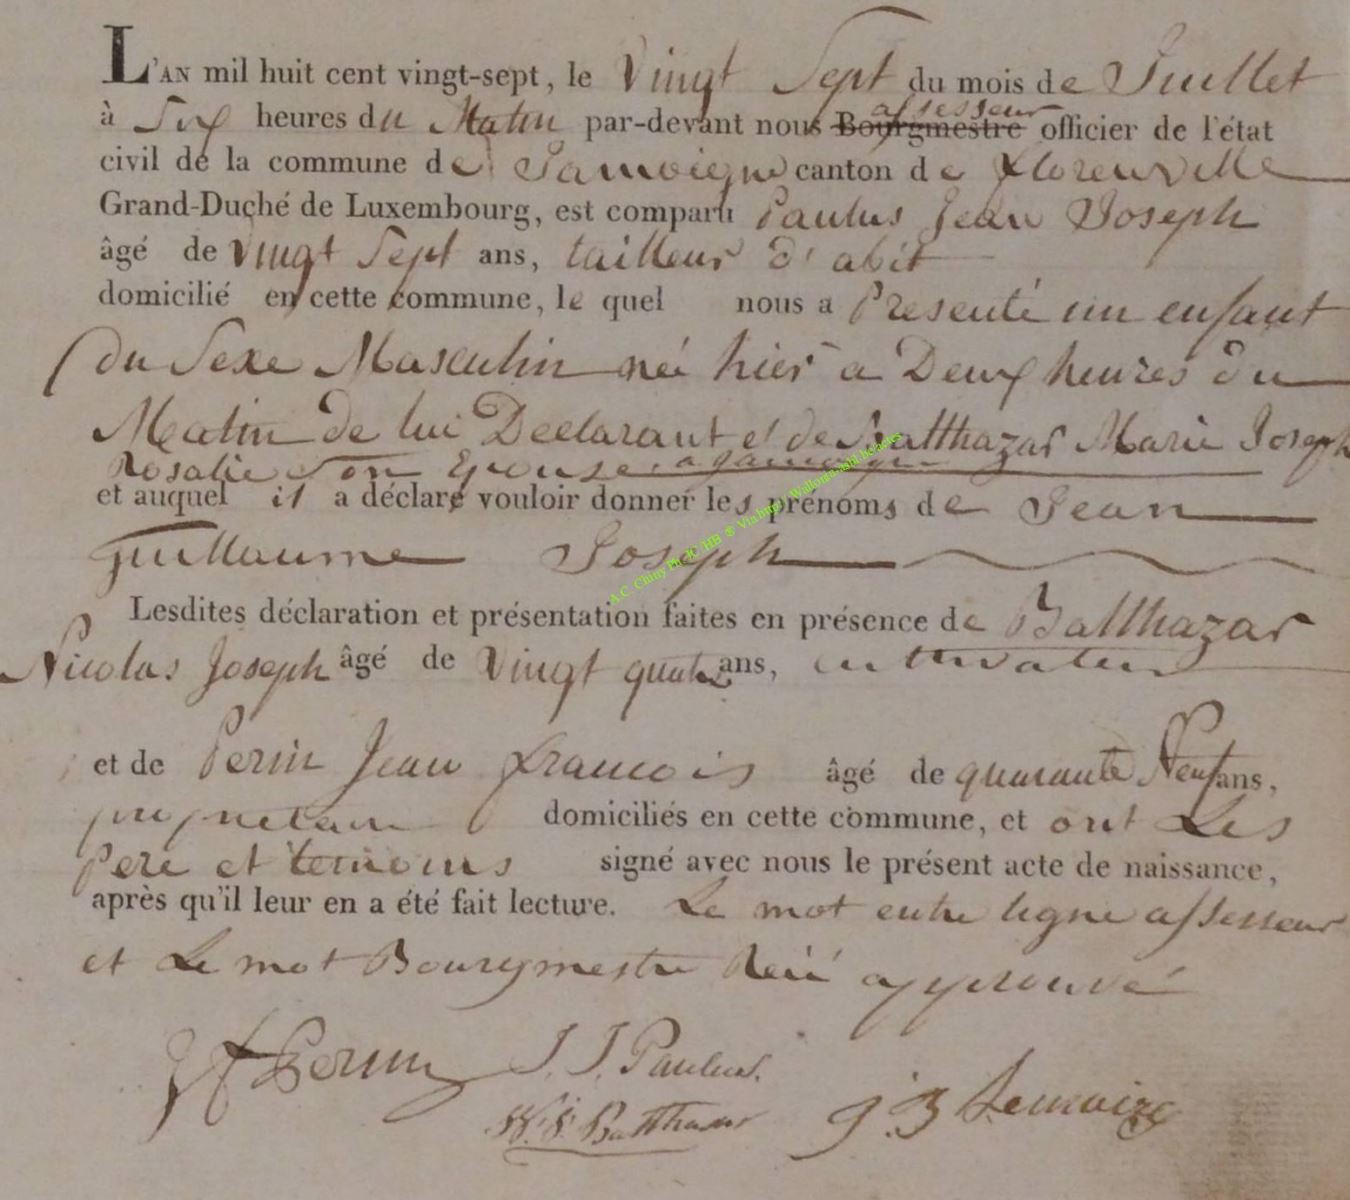 L'AN mil huit cent vingt-sept, le Vingt Sept du mois de Juillet
à Six heures du Matin par-devant nous Bourgmestre assesseur officier de l'état
civil de la commune de Jamoigne canton de florenville
Grand-Duché de Luxembourg, est comparu Paulus Jean Joseph
âgé de Vingt Sept ans, tailleur d'abit
domicilié en cette commune, le quel nous a Presenté un enfant
du Sexe Masculin né hier a Deux heures du
Matin de lui Declarant et de Balthazar Marie Joseph
Rosalie Son Epouse, a Jamoigne
et auquel il a déclaré vouloir donner les prénoms de Jean
guillaume Joseph
Lesdites déclaration et présentation faites en présence de Balthazar
Nicolas Joseph âgé de Vingt quatre ans, cultivateur
et de Perin Jean francois âgé de quarante Neuf ans,
propriétaire domiciliés en cette commune, et ont Les
Pere et temoins signé avec nous le présent acte de naissance,
après qu'il leur en a été fait lecture. Le mot entre ligne assesseur
et Le mot Bourgmestre Reié approuvé
JF Perin J. J. Paulus.
N. J. Balthazar J B Lemoine
A.C. Chiny Ph JC HB ® Via